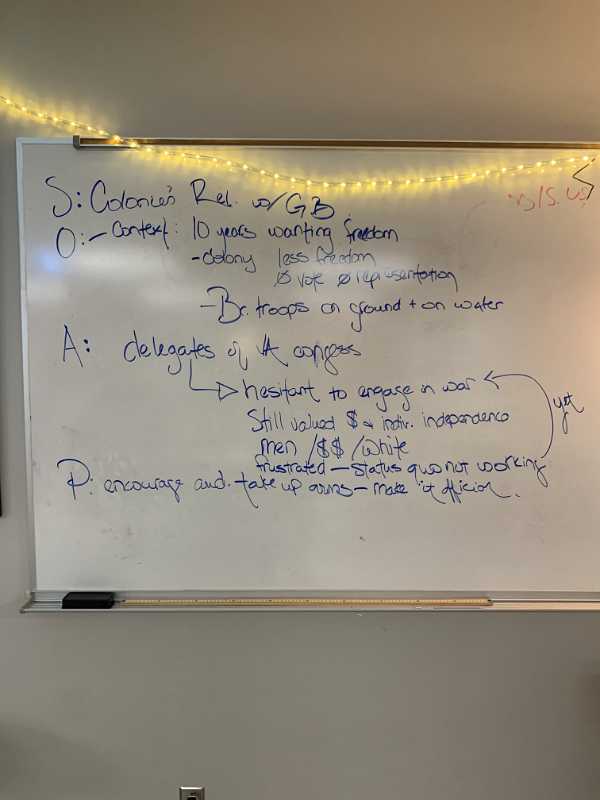 S: Colonie's Rel. w/ GB
O: - Context: 10 years wanting freedom
- colony less freedom
Ø vote Ø representation
- Br. troops on ground + on water
A: delegates of VA congress
hesitant to engage in war
Still valued $ & indiv. independence
yet
men /$$ /white
frustrated - status quo not working
P: encourage aud. take up arms - make it official.